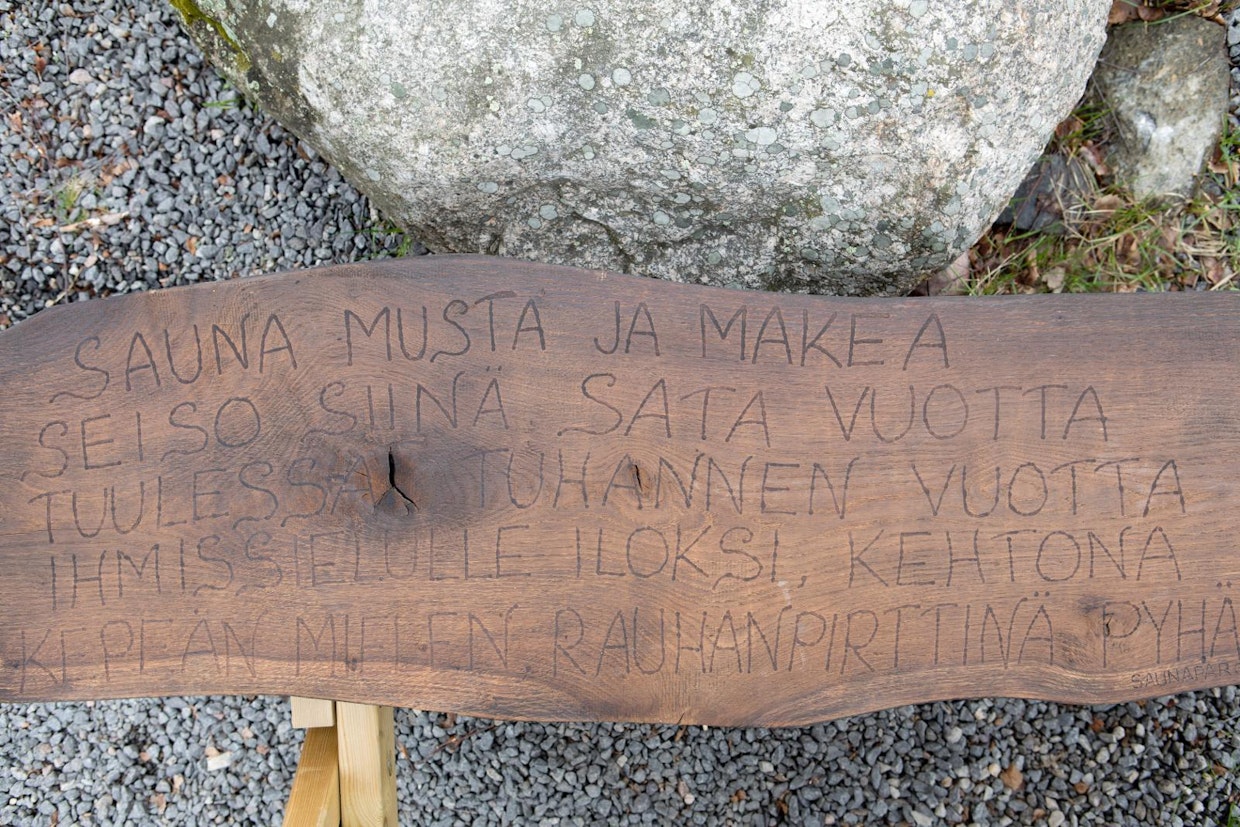 SAUNA MUSTA JA MAKEA
SEISO SIINÄ. SATA VUOTTA
TUULESSA TUHANNEN VUOTTA
IHMISSIELULLE ILOKSI, KEHTONA
KEPEÄN MIELEN RAUHANPIRTTINÄ PYHÄ
SAUNAPAR